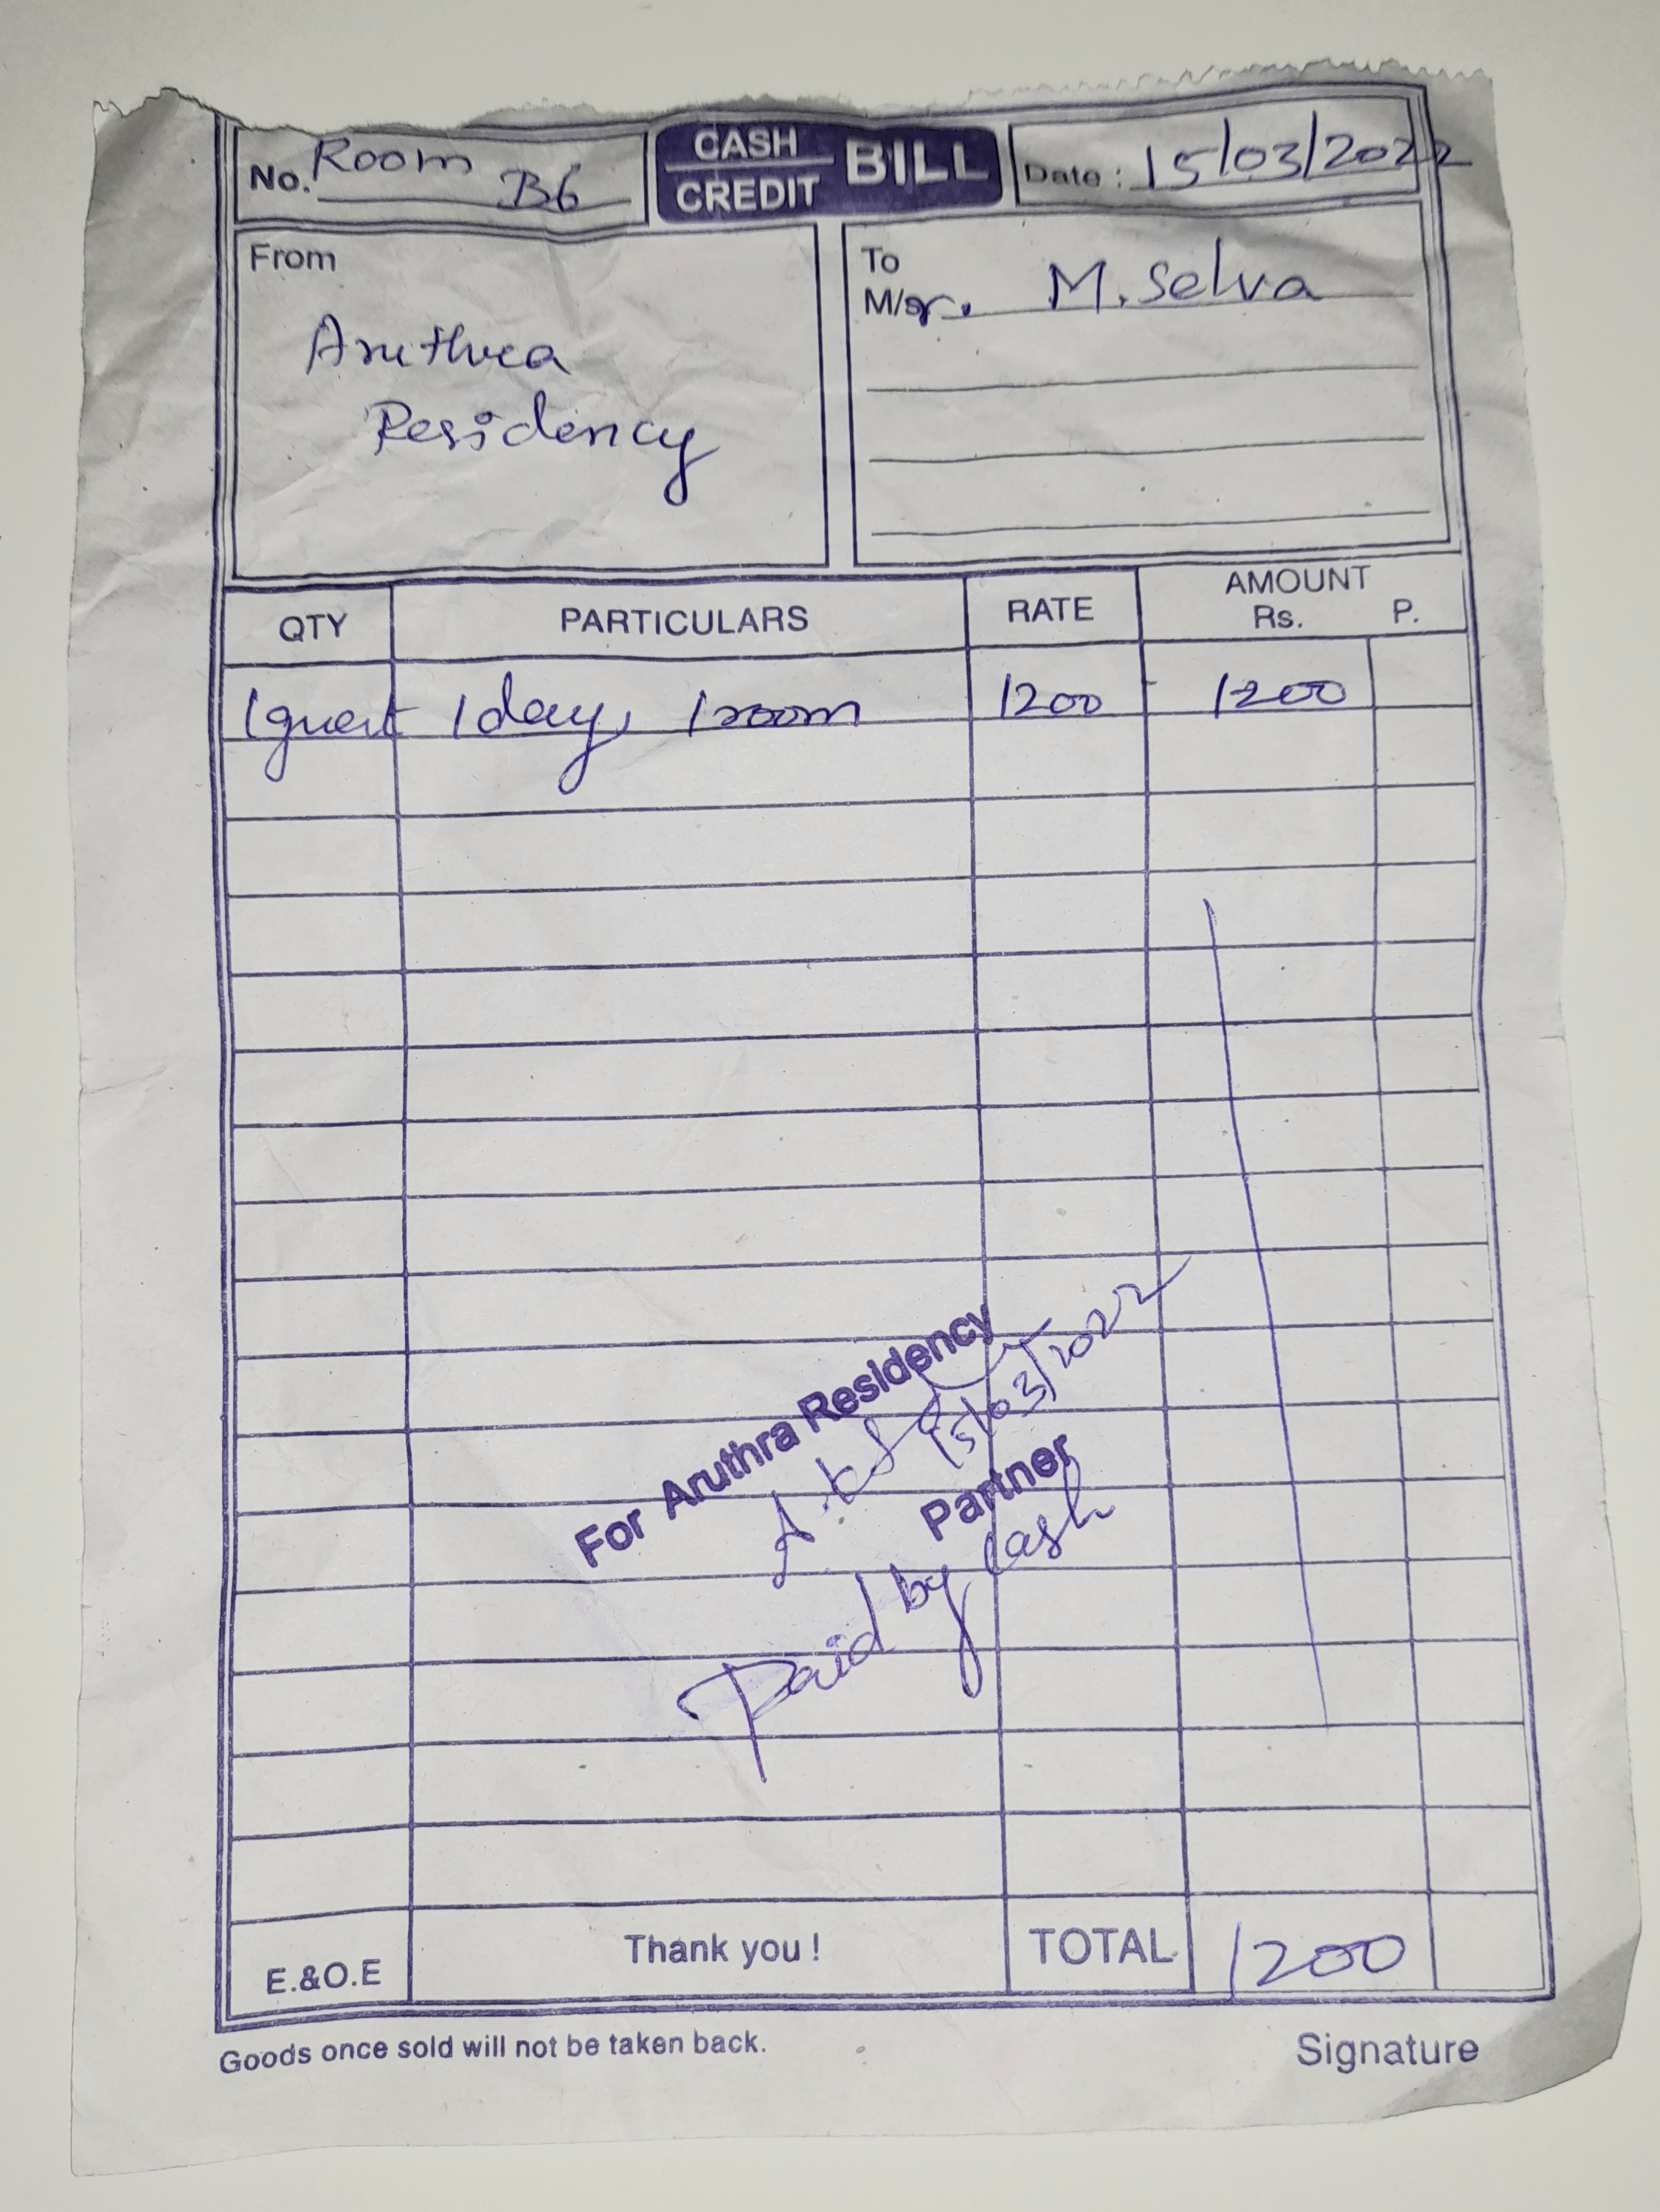 No. Room B6
CASH
CREDIT
BILL
Date : 15/03/2022
From
Aruthra
Residency
To
M/sr. M. Selva
QTY PARTICULARS RATE AMOUNT
Rs. P.
1 guest 1 day, 1 room 1200 1200
For Aruthra Residency
15/03/2022
Partner
Paid by cash
E.&O.E Thank you ! TOTAL 1200
Goods once sold will not be taken back. Signature